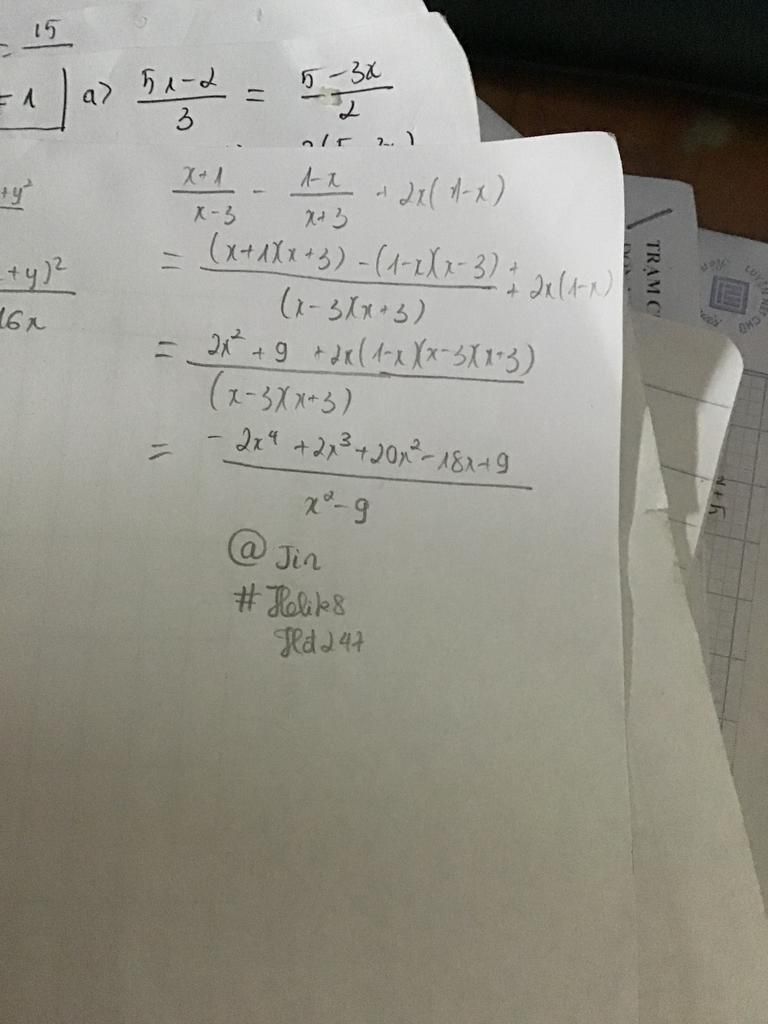 = 15
= 1 a) 5x-2/3 = 5-3x/2
+y²
+y)²
16x
x+1/x-3 - 1-x/x+3 + 2x(1-x)
= (x+1)(x+3) - (1-x)(x-3) + / (x-3)(x+3) + 2x(1-x)
= 2x² + 9 + 2x(1-x)(x-3)(x+3) / (x-3)(x+3)
= -2x⁴ + 2x³ + 20x² - 18x + 9 / x² - 9
@ Jin
# Helik8
Hd247
TRẠM C